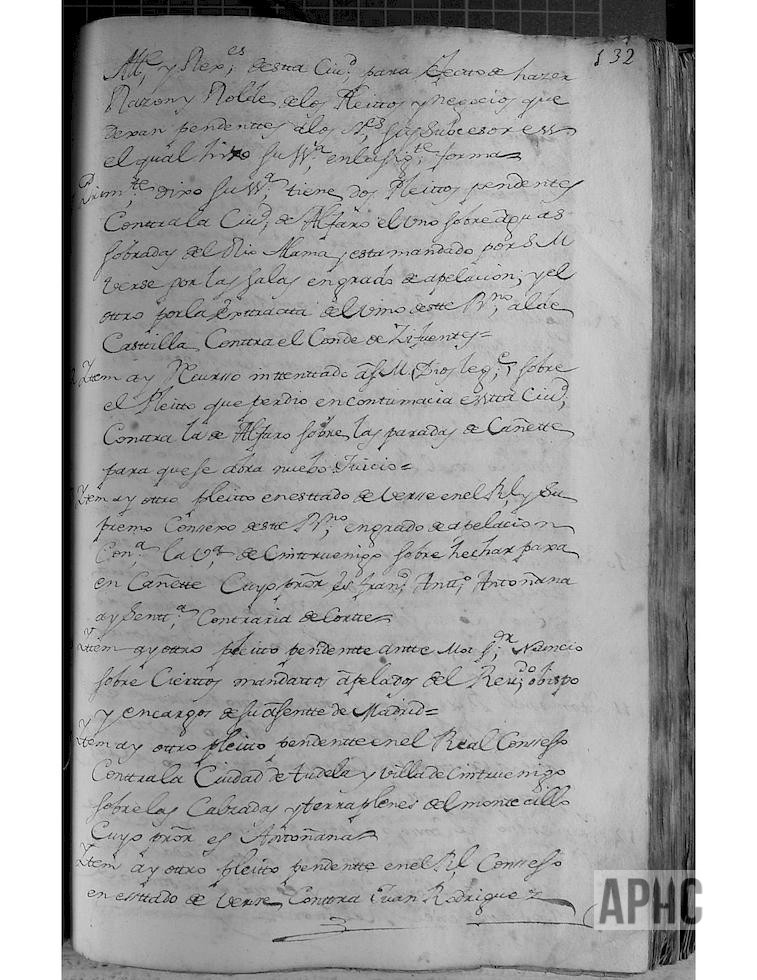 132
Alle, y Rex.es desta Ciud, para efecto de hazer
Razon y Rolde, de los Pleittos y negocios que
dexan pendenttes a los S.es sus Subcesores
el qual hizo su Mrd. en la sig.te forma=
Prim.te dixo su Mrd. tiene dos Pleittos pendentes
Contra la Ciud, de Alfaro el Uno sobre aguas
sobradas del Rio Alama, y esta mandado por S M
verse por las salas en grado de apelacion, y el
ottro por la Exttracta del vino deste R.no, al de
Casttilla, Contra el Conde de Zifuentes=
Ittem ay Recursso inttenttado a S. M. (Dios le g.e, sobre
el Pleitto que perdio en conttumacia estta Ciud,
Conttra la de Alfaro sobre, las paradas de Cañette
para que se abra nuebo Juicio=
Ittem ay ottro pleitto en esttado de verse en el Rl, y Su
premo Consexo deste R.no, en grado de apelacion
Con.a la V.a de Cinttruenigo sobre hechar para
en Cañette Cuyo pror. es Fran,co Antt.o Antoñana
ay Sentt.a Contraria de Cortte=
Ittem ay ottro pleitto pendentte antte Mos s.or Nuncio
sobre Ciertos mandattos apelados del Reu.do obispo
y encargos de su asentte de Madrid=
Ittem ay ottro pleitto pendentte en el Real Conssesso
Conttra la Ciudad de tudela y villa de Cinttruenigo
sobre las Cabradas y terraplenes del montecillo
Cuyo pror es Antoñana=
Ittem ay ottro pleitto pendentte en el Rl, Conssesso
en esttado de verse, Conttra Juan Rodriguez
APHC